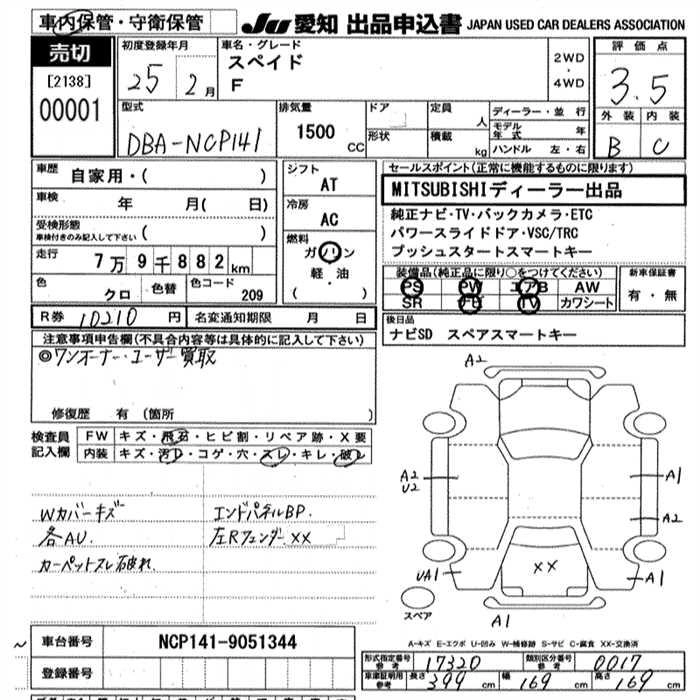 車内保管・守衛保管
JU 愛知 出品申込書 JAPAN USED CAR DEALERS ASSOCIATION
売切
[2138]
00001
初度登録年月
25 2月
車名・グレード
スペイド
F
2WD
・
4WD
評価点
3.5
外装 内装
B C
型式
DBA-NCP141
排気量
1500 CC
ドア
形状
定員 人
積載 kg
ディーラー・並行
モデル年式 年
ハンドル 左・右
車歴 自家用・( )
車検 年 月( 日)
受検形態
車検付きのみ記入して下さい ( )
走行 7万9千882km
色 クロ 色替 色コード 209
シフト
AT
冷房
AC
燃料
ガソリン
軽・油
( )
セールスポイント(正常に機能するものに限ります)
MITSUBISHIディーラー出品
純正ナビ・TV・バックカメラ・ETC
パワースライドドア・VSC/TRC
プッシュスタートスマートキー
装備品(純正品に限り○をつけてください)
PS PW エアB AW
SR ナビ TV カワシート
新車保証書
有・無
R券 10210円 名変通知期限 月 日
後日品
ナビSD スペアスマートキー
注意事項申告欄(不具合内容等は具体的に記入して下さい)
◎ワンオーナー・ユーザー買取
修復歴 有 (箇所 )
検査員
記入欄
FW キズ・飛石・ヒビ割・リペア跡・X要
内装 キズ・汚レ・コゲ・穴・スレ・キレ・破レ
Wカバーキズ
各AU.
カーペットスレ破れ.
エンドパネルBP.
左Rフェンダー××
A2
A2
U2
A1
A2
UA1
××
A1
A1
スペア
A-キズ E-エクボ U-凹み W-補修跡 S-サビ C-腐食 XX-交換済
車台番号 NCP141-9051344
登録番号
型式指定番号
参考
17320
類別区分番号
参考
0017
車庫証明用
参考
長さ 399 cm 幅 169 cm 高さ 169 cm